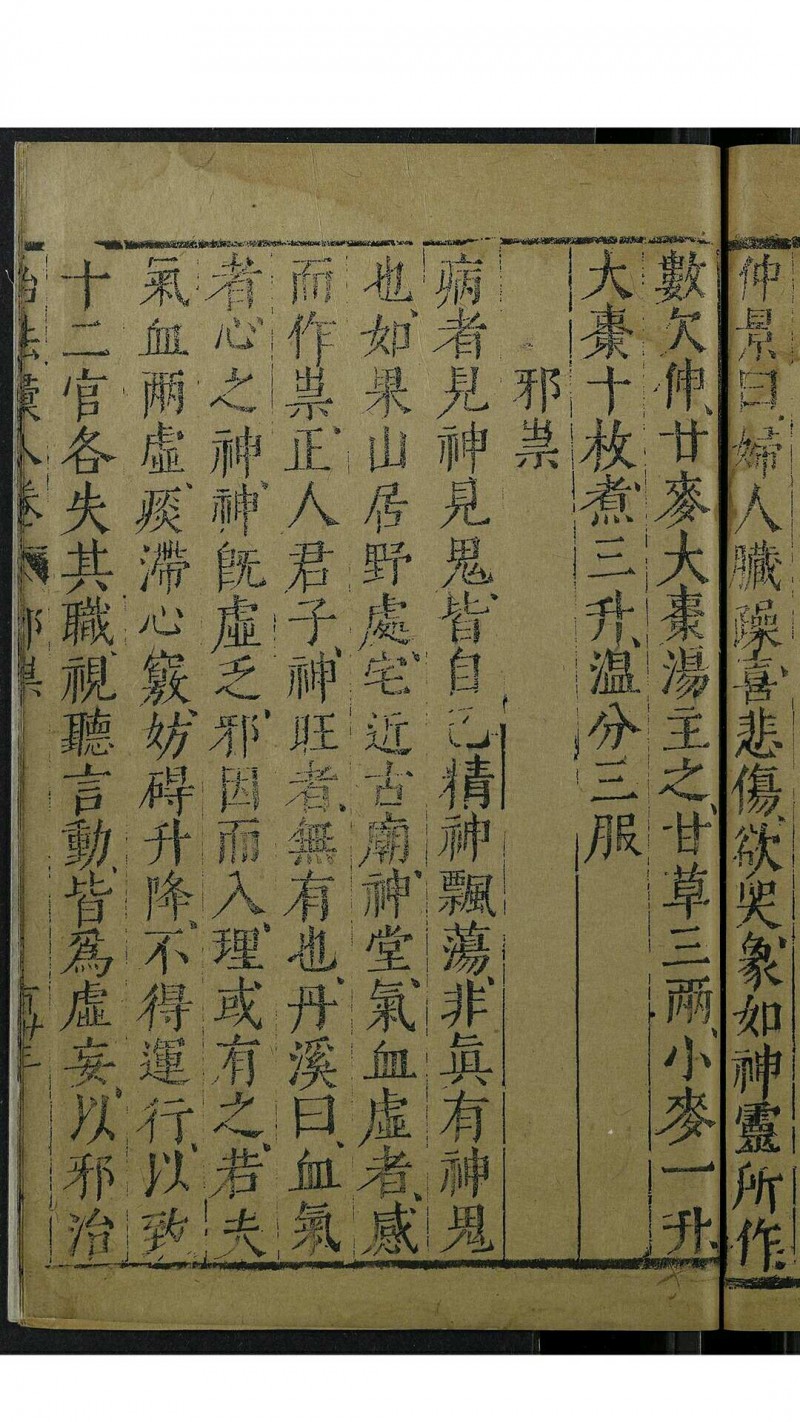 仲景曰、婦人臟躁、喜悲傷、欲哭、象如神靈所作、
數欠伸、甘麥大棗湯主之、甘草三兩、小麥一升、
大棗十枚、煮三升、温分三服
邪祟
病者見神見鬼、皆自己精神飄蕩、非眞有神鬼
也、如果山居野處、宅近古廟神堂、氣血虛者、感
而作祟、正人君子、神旺者、無有也、丹溪曰、血氣
者、心之神、神旣虛乏、邪因而入、理或有之、若夫
氣血兩虛、痰滯心竅、妨碍升降、不得運行、以致
十二官各失其職、視聽言動、皆爲虛妄、以邪治
治法彙八卷 邪祟 百廿三